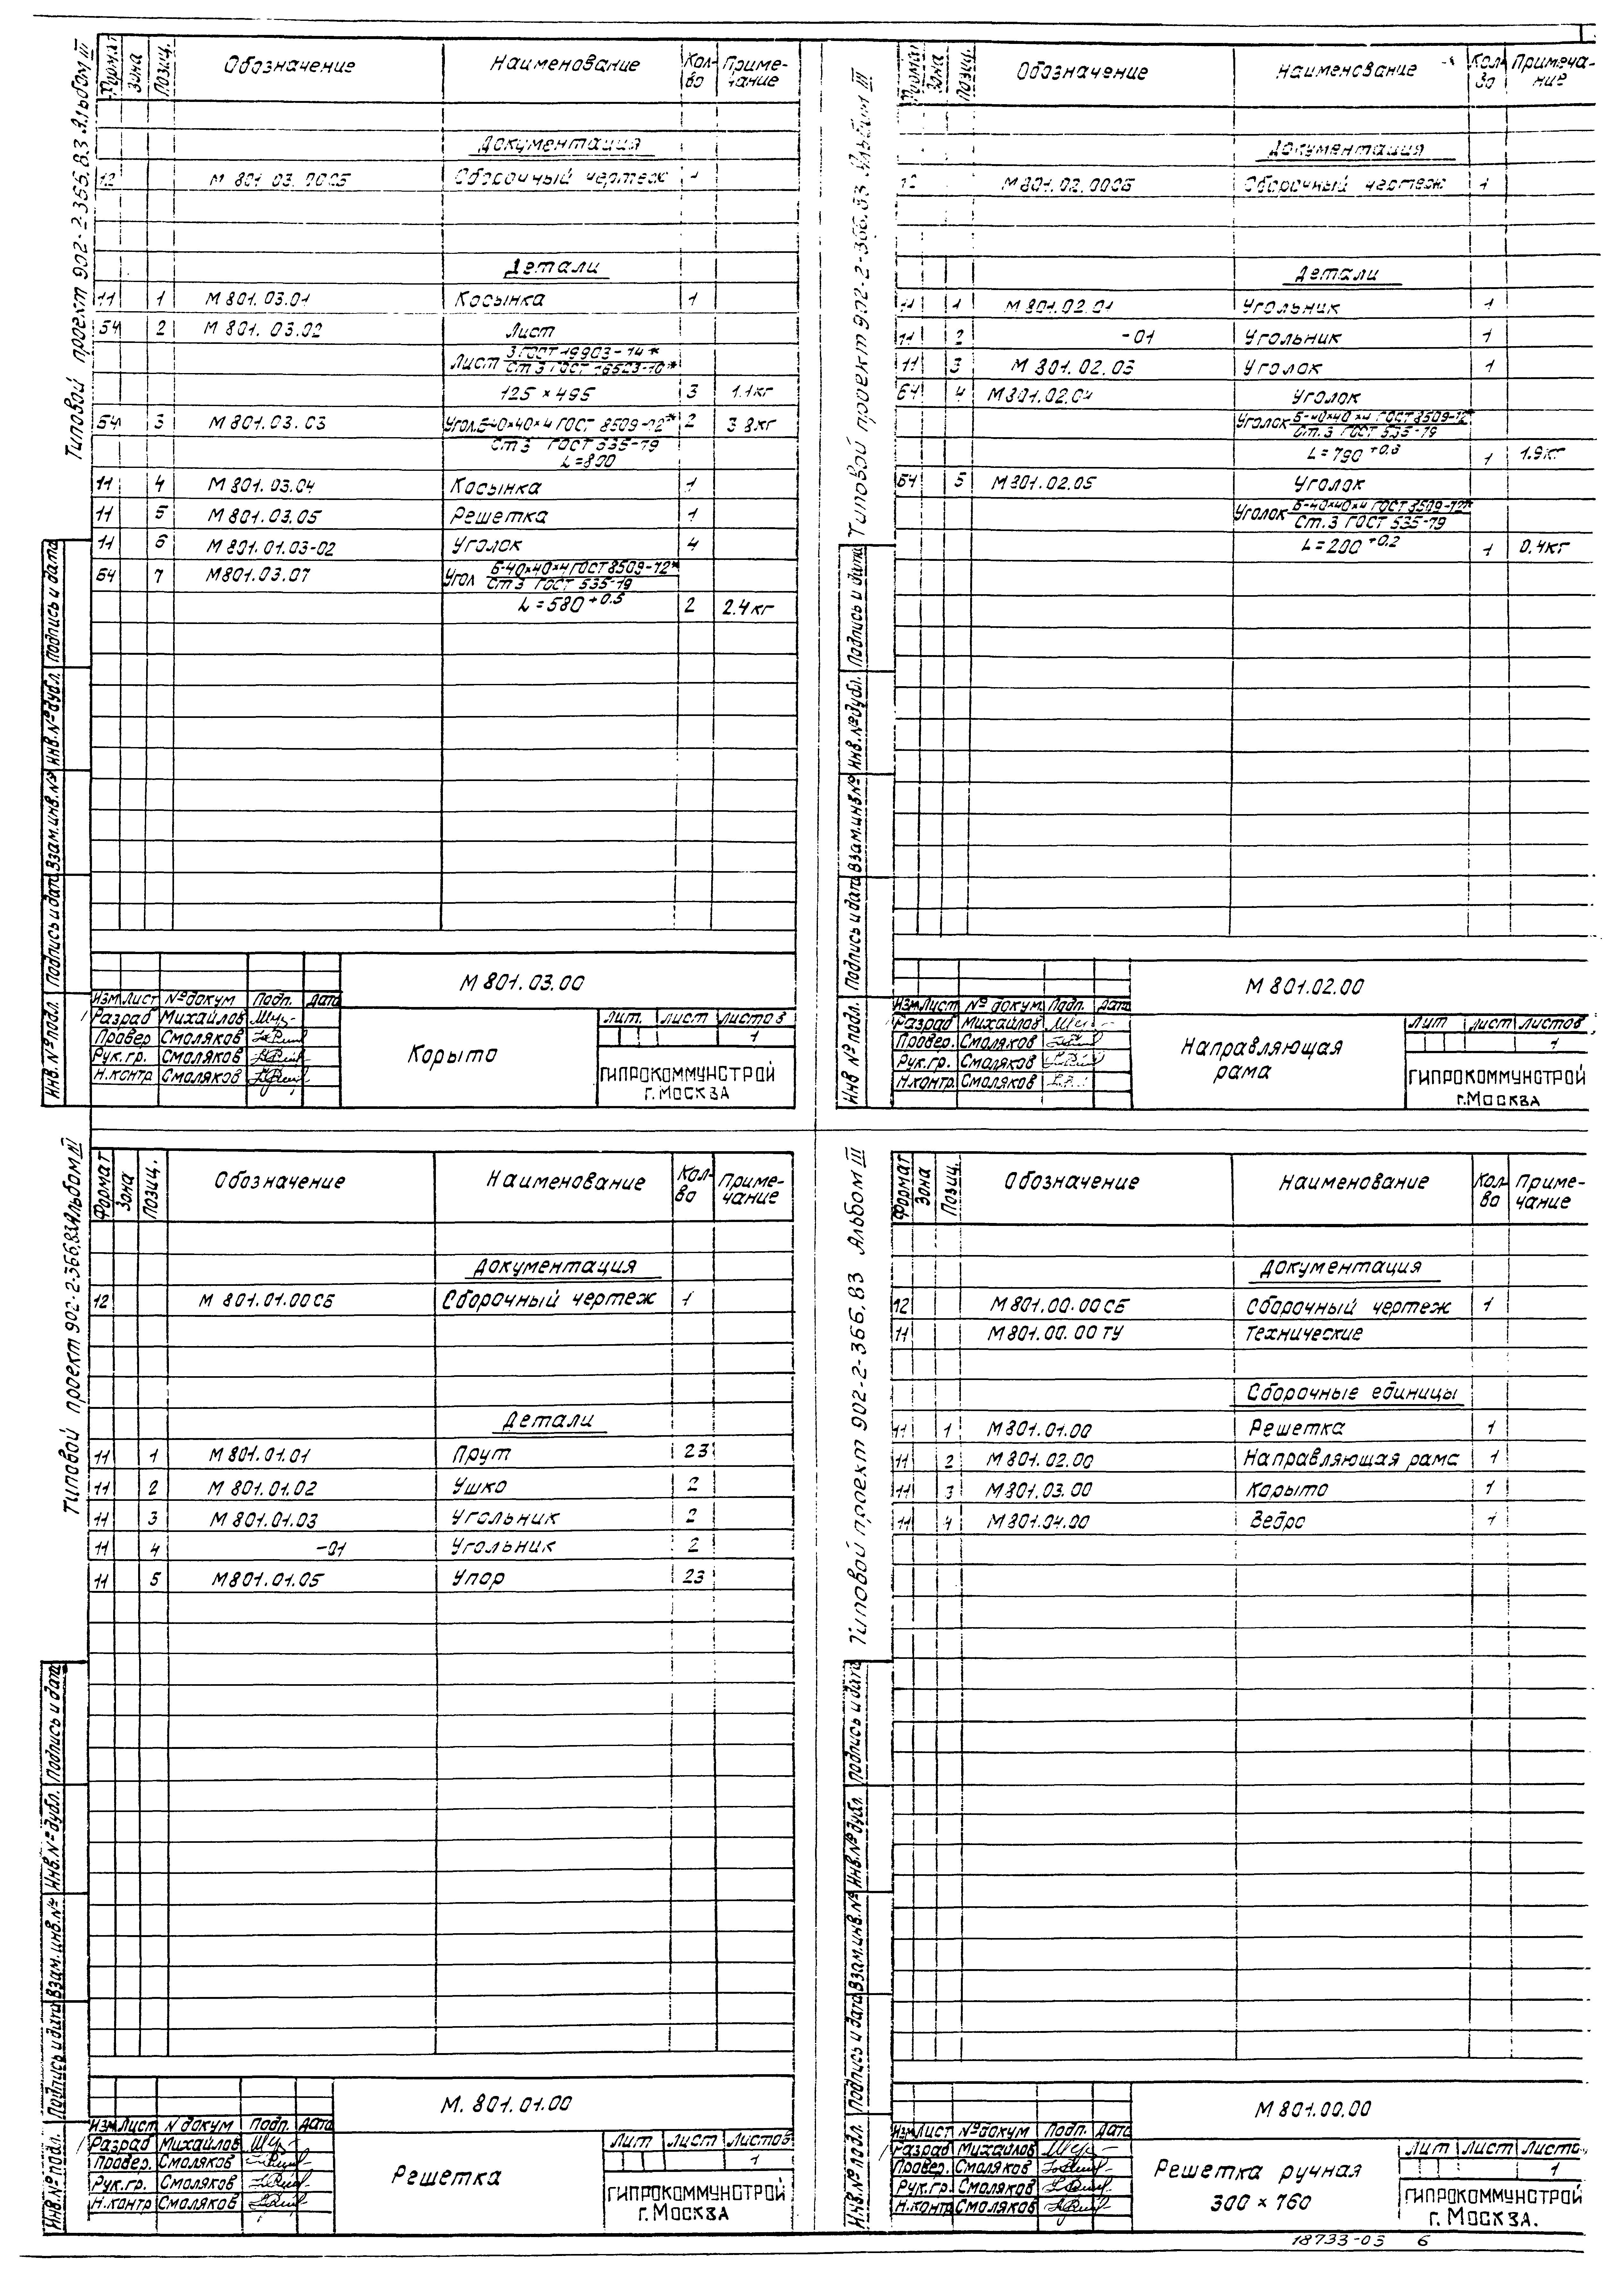 Типовой проект 902-2-366.83 Альбом III
Формат Зона Позиц. Обозначение Наименование Кол-во Приме-чание
Документация
12 М 801.03.00СБ Сборочный чертеж 1
Детали
11 1 М 801.03.01 Косынка 1
БЧ 2 М 801.03.02 Лист
Лист 3 ГОСТ 19903-74*
Ст.3 ГОСТ 16523-70*
125 × 495 3 1.1кг
БЧ 3 М 801.03.03 Угол.Б-40×40×4 ГОСТ 8509-72* 2 3.8кг
Ст3 ГОСТ 535-79
L=800
11 4 М 801.03.04 Косынка 1
11 5 М 801.03.05 Решетка 1
11 6 М 801.01.03-02 Уголок 4
БЧ 7 М801.03.07 Угол Б-40×40×4 ГОСТ 8509-72*
Ст3 ГОСТ 535-79
L=580 +0.5 2 2.4кг
Инв.№подл. Подпись и дата Взам.инв.№ Инв.№дубл. Подпись и дата
М 801.03.00
Изм Лист №докум Подп. Дата
Разраб Михайлов
Провер Смоляков
Рук.гр. Смоляков
Н.контр Смоляков
Корыто
Лит. Лист Листов
1
ГИПРОКОММУНСТРОЙ
г.Москва
Типовой проект 902-2-366.83 Альбом III
Формат Зона Позиц. Обозначение Наименование Кол-во Примеча-ние
Документация
12 М801.02.00СБ Сборочный чертеж 1
Детали
11 1 М 801.02.01 Угольник 1
11 2 -01 Угольник 1
11 3 М 801.02.03 Уголок 1
БЧ 4 М801.02.04 Уголок
Уголок Б-40×40×4 ГОСТ 8509-72*
Ст.3 ГОСТ 535-79
L=790 +0.8 1 1.9кг
БЧ 5 М801.02.05 Уголок
Уголок Б-40×40×4 ГОСТ 8509-72*
Ст.3 ГОСТ 535-79
L=200 +0.2 1 0.4кг
Инв №подл. Подпись и дата Взам.инв№ Инв.№дубл. Подпись и дата
М 801.02.00
Изм Лист № докум. Подп. Дата
Разраб Михайлов
Провер. Смоляков
Рук.гр. Смоляков
Н.контр Смоляков
Направляющая
рама
Лит Лист Листов
1
ГИПРОКОММУНСТРОЙ
г.Москва
Типовой проект 902-2-366.83 Альбом III
Формат Зона Позиц. Обозначение Наименование Кол-во Приме-чание
Документация
12 М 801.01.00СБ Сборочный чертеж 1
Детали
11 1 М 801.01.01 Прут 23
11 2 М 801.01.02 Ушко 2
11 3 М 801.01.03 Угольник 2
11 4 -01 Угольник 2
11 5 М801.01.05 Упор 23
Инв.№подл. Подпись и дата Взам.инв.№ Инв.№дубл. Подпись и дата
М. 801.01.00
Изм Лист N докум Подп. Дата
Разраб Михайлов
Провер. Смоляков
Рук.гр. Смоляков
Н.контр Смоляков
Решетка
Лит Лист Листов
1
ГИПРОКОММУНСТРОЙ
г.Москва
Типовой проект 902-2-366.83 Альбом III
Формат Зона Позиц. Обозначение Наименование Кол-во Приме-чание
Документация
12 М801.00.00СБ Сборочный чертеж 1
11 М801.00.00ТУ Технические
Сборочные единицы
11 1 М801.01.00 Решетка 1
11 2 М 801.02.00 Направляющая рама 1
11 3 М801.03.00 Корыто 1
11 4 М801.04.00 Ведро 1
Инв.№подл. Подпись и дата Взам.инв.№ Инв.№дубл. Подпись и дата
М 801.00.00
Изм Лист №докум Подп. Дата
Разраб Михайлов
Провер. Смоляков
Рук.гр. Смоляков
Н.контр Смоляков
Решетка ручная
300 × 760
Лит Лист Листов
1
ГИПРОКОММУНСТРОЙ
г. Москва.
18733-03 6